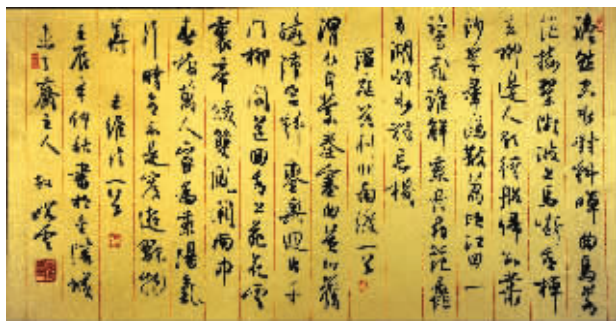 澹然空水對斜暉曲島蒼
茫接翠微波上馬嘶看棹
去柳邊人歇待船歸數叢
沙草群鷗散萬頃江田一
鷺飛誰解乘舟尋范蠡
五湖煙水獨忘機
溫庭筠利州南渡一首
渭水自縈秦塞曲黃山舊
繞漢宮斜鑾輿迥出千
門柳閣道回看上苑花雲
裏帝城雙鳳闕雨中
春樹萬人家為乘陽氣
行時令不是宸遊玩物
華 王維詩一首
壬辰年仲秋書於金陵城
齋主人